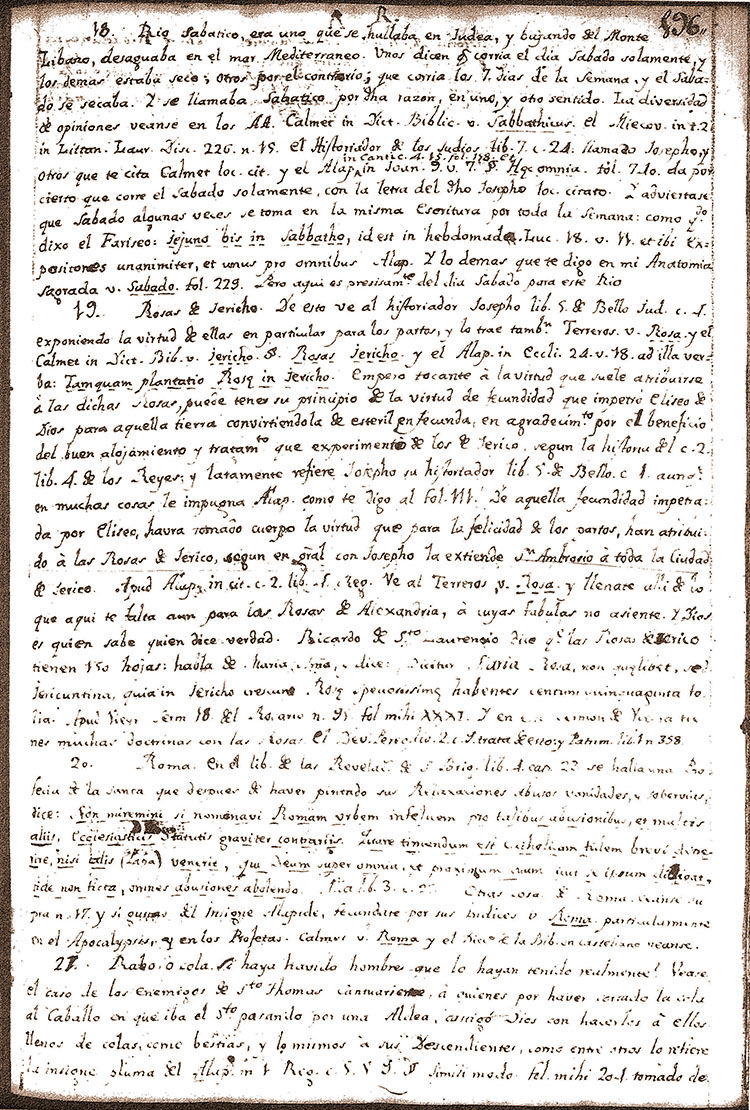 R
896.
18. Rio Sabatico, era uno que se hallaba en Judea, y bajando del Monte
Libano, desaguaba en el mar Mediterraneo. Unos dicen q corria el dia Sabado solamente, y
los demas estaba seco; otros por el contrario; que corria los 7. dias de la Semana, y el Saba-
do se secaba. Y se llamaba Sabatico por dha razon, en uno, y otro sentido. La diversidad
de opiniones veanse en los AA. Calmet in Dict. Biblic. v. Sabbathicus. el Miecov. in t. 2
in Littan. Laur. Disc. 226. n. 15. el Historiador de los Judios lib. 7. c. 24. llamado Josepho, y
in Cant. c. 4. 15. fol. 178. et
otros que te cita Calmet loc. cit. y el Alap. in Joan. 9. v. 7. §. Hæc omnia. fol. 740. da por
cierto que corre el Sabado solamente, con la letra del dho Josepho loc. citato. Y adviertase
que Sabado algunas veces se toma en la misma Escritura por toda la Semana: como qdo
dixo el Fariseo: jejuno bis in Sabbatho, id est in hebdomada. Luc. 18. v. 11. et ibi Ex-
positores unanimiter, et unus pro omnibus Alap. Y lo demas que te digo en mi Anatomia
Sagrada v. Sabado. fol. 229. Pero aqui es presisamte. del dia Sabado para este Rio
19. Rosas de Jericho. De esto ve al historiador Josepho lib. 5. de Bello Jud. c. 4.
exponiendo la virtud de ellas en particular para los partos, y lo trae tambn. Terreros. v. Rosa. y el
Calmet in Dict. Bib. v. Jericho. §. Rosas Jericho. y el Alap. in Eccli. 24. v. 18. ad illa ver-
ba: Tamquam plantatio Rosæ in Jericho. Empero tocante à la virtud que suele atribuirse
à las dichas Rosas, puede tener su principio de la virtud de fecundidad que impetró Eliseo de
Dios para aquella tierra convirtiendola de esteril en fecunda, en agradecimto. por el beneficio
del buen alojamiento y tratamto. que experimentó de los de Jerico, segun la historia del c. 2.
lib. 4. de los Reyes; y latamente refiere Josepho su historiador lib. 5. de Bello. c. 4. aunqe.
en muchas cosas le impugna Alap. como te digo al fol. VII. De aquella fecundidad impetra-
da por Eliseo, havra tomado cuerpo la virtud que para la felicidad de los partos, han atribui-
do à las Rosas de Jerico, segun en gral con Josepho la extiende Sn. Ambrosio à toda la Ciudad
de Jerico. Apud Alap. in cit. c. 2. lib. 4. Reg. Ve al Terreros, v. Rosa. y llenate alli de lo
que aqui te falta aun para las Rosas de Alexandria, à cuyas fabulas no asiente. Y Dios
es quien sabe quien dice verdad. Ricardo de Sto Laurencio dice qe. las Rosas de Jerico
tienen 150 hojas: habla de Maria y dice: Dicitur Maria Rosa, non quælibet, sed
Jericuntina, quia in Jericho crescunt Rosæ speciosissimæ habentes centum quinquaginta fo-
lia. Apud Vieyr. Serm 18. del Rosario n. 91. fol mihi XXXI. Y en Sermon de tie-
nes muchas doctrinas con las Rosas. El lib. 2. c. trata de esto; y Patrim. lib. 1 n 358.
20. Roma. En el lib. de las Revelac. de S. Brig. lib. 4. cap. 22 se halla una Pro-
fecia de la Santa que despues de haver pintado sus Relaxaxiones abusos vanidades, y sobervias,
dice: Non miremini si nominavi Romam urbem infelicem pro talibus abusionibus, et multis
aliis, Ecclesiasticis Statutis graviter contrariis. Quare timendum est Catholicam fidem brevi
nisi aliquis (Papa) venerit, qui Deum super omnia, et proximum suum sicut se ipsum diligat,
fide non ficta, omnes abusiones abolendo. lib. 3. c. 27. Otras cosas de Roma veanse su-
pra n. 17. y si gustas del Insigne Alapide, fecundate por sus Indices v. Roma. particularmente
en el Apocalypsis, y en los Profetas. Calmet v. Roma y el Dicc. de la Bib. en castellano veanse.
21. Rabo, ò cola. Si haya havido hombres que lo hayan tenido realmente? Vease
el caso de los Enemigos de Sto Thomas Cantuariense, à quienes por haver cortado la cola
al Caballo en que iba el Sto pasando por una Aldea, castigó Dios con hacerlos à ellos
llenos de colas, como bestias, y lo mismos a sus Descendientes, como entre otros lo refiere
la insigne pluma del Alap. in 1 Reg. c. 5. v 9. § Simili modo. fol mihi 204. tomado de